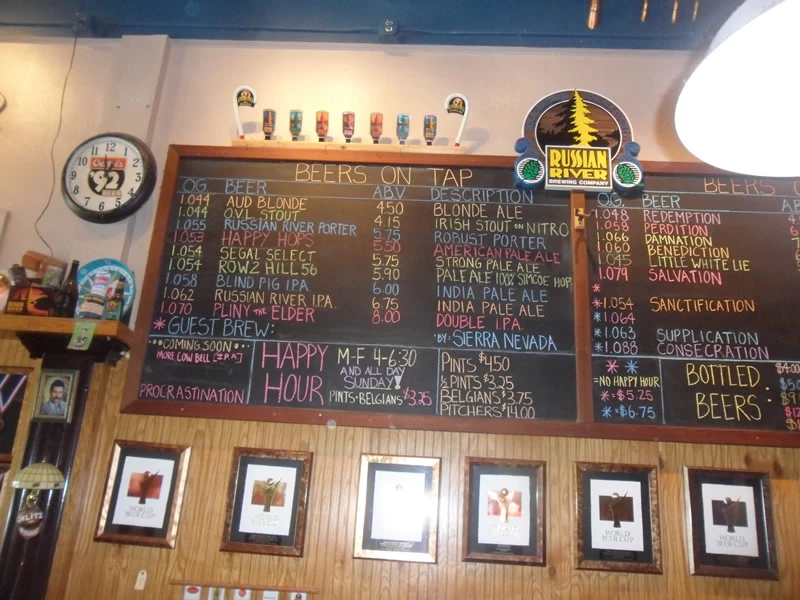 RUSSIAN
RIVER
BREWING COMPANY
'92
BEERS ON TAP
O.G. BEER ABV DESCRIPTION
1.044 AUD BLONDE 4.50 BLONDE ALE
1.044 O.V.L STOUT 4.15 IRISH STOUT ON NITRO
1.055 RUSSIAN RIVER PORTER 5.75 ROBUST PORTER
1.053 HAPPY HOPS 5.50 AMERICAN PALE ALE
1.054 SEGAL SELECT 5.75 STRONG PALE ALE
1.054 ROW2 HILL 56 5.90 PALE ALE 100% SIMCOE HOP
1.058 BLIND PIG IPA 6.00 INDIA PALE ALE
1.062 RUSSIAN RIVER IPA. 6.75 INDIA PALE ALE
1.070 PLINY THE ELDER 8.00 DOUBLE I.P.A.
*GUEST BREW: "BY: SIERRA NEVADA
COMING SOON
MORE COW BELL [I.P.A]
PROCRASTINATION
HAPPY
HOUR
M-F 4-6:30
AND ALL DAY
SUNDAY!
PINTS & BELGIANS $3.25
PINTS $4.50
½ PINTS $3.25
BELGIANS $3.75
PITCHERS $14.00
BEERS
OG BEER
1.048 REDEMPTION
1.058 PERDITION
1.066 DAMNATION
1.060 BENEDICTION
1.045 LITTLE WHITE LIE
1.079 SALVATION
*
*1.054 SANCTIFICATION
*1.064
*1.063 SUPPLICATION
*1.088 CONSECRATION
* *
=NO HAPPY HOUR
*=$5.25
*=$6.75
BOTTLED
BEERS:
WORLD
BEER CUP
WORLD
BEER CUP
WORLD
BEER CUP